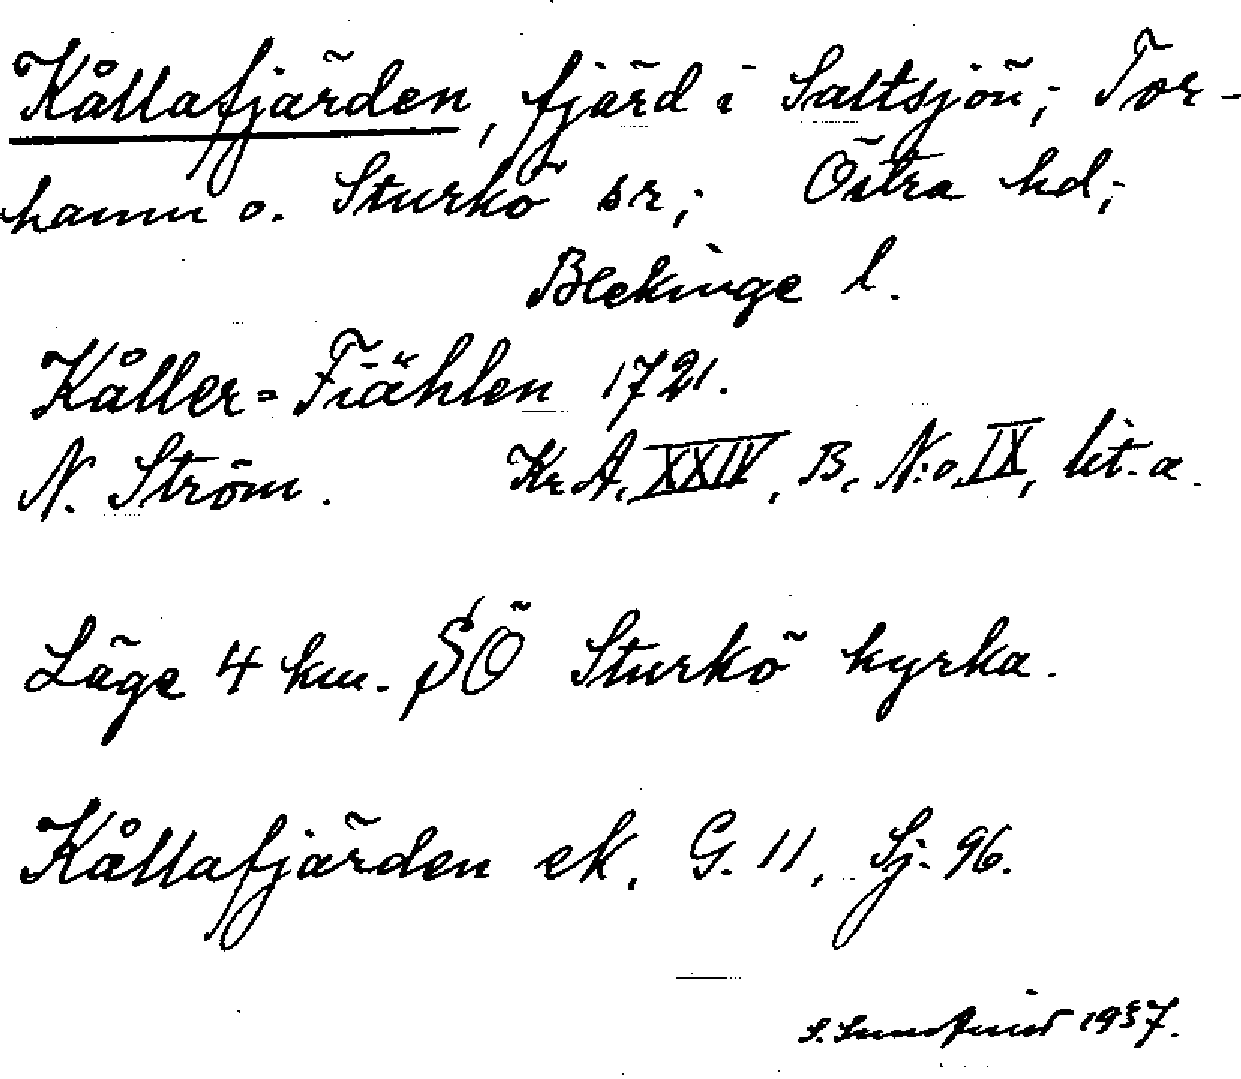 Kållafjärden, fjärd i Saltsjön; Tor-
hamn o. Sturkö sr; Östra hd;
Blekinge l.
Kåller=Fiählen 1721.
N. Ström. Kr.A. XXIV, B. N:o IX, lit. a.
Läge 4 km. SÖ Sturkö kyrka.
Kållafjärden ek. G. 11, Sj. 96.
S. 1937.